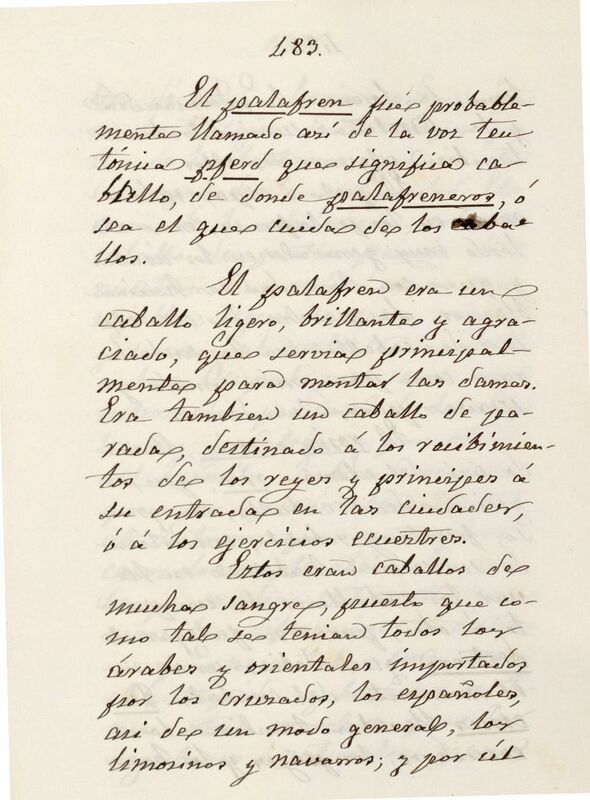 483.
El palafren fué probable-
mente llamado así de la voz teu
tónica pferd que significa ca
ballo, de donde palafreneros, ó
sea el que cuida de los caba-
llos.
El palafren era un
caballo ligero, brillante y agra-
ciado, que servia principal-
mente para montar las damas.
Era tambien un caballo de pa-
rada, destinado á los recibimien-
tos de los reyes y principes á
su entrada en las ciudades,
ó á los ejercicios ecuestres.
Estos eran caballos de
mucha sangre, puesto que co-
mo tal se tenian todos los
árabes y orientales importados
por los cruzados, los españoles,
asi de un modo general, los
limosinos y navarros; y por úl-